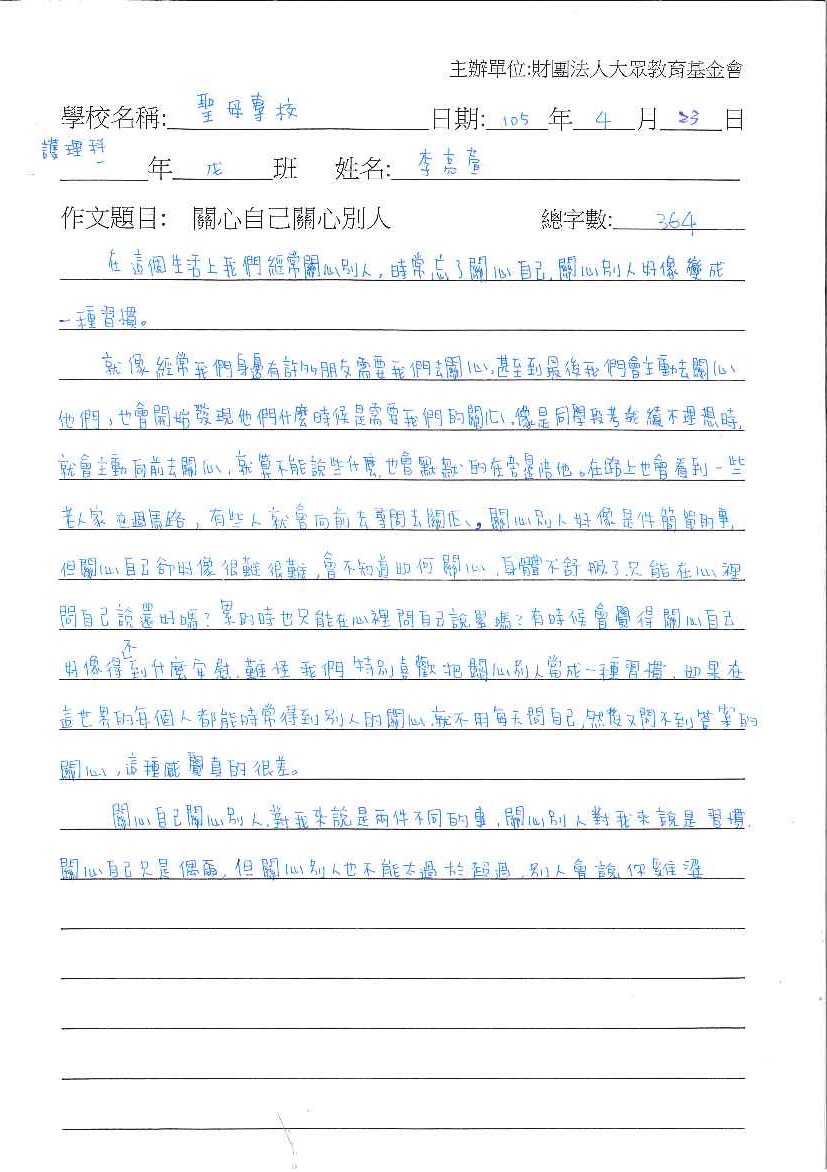 主辦單位:財團法人大眾教育基金會
學校名稱: 聖母專校 日期: 105 年 4 月 23 日
護理科
一 年 戊 班 姓名: 李亮萱
作文題目: 關心自己關心別人 總字數: 364
在這個生活上我們經常關心別人,時常忘了關心自己,關心別人好像變成
一種習慣。
就像經常我們身邊有許多朋友需要我們去關心,甚至到最後我們會主動去關心
他們,也會開始發現他們什麼時候是需要我們的關心,像是同學段考成績不理想時,
就會主動向前去關心,就算不能說些什麼,也會默默的在旁邊陪他。在路上也會看到一些
老人家在過馬路,有些人就會向前去尋問去關心,關心別人好像是件簡單的事,
但關心自己卻好像很難很難,會不知道如何關心,身體不舒服了只能在心裡
問自己說還好嗎?累的時也只能在心裡問自己說累嗎?有時候會覺得關心自己
好像得不到什麼安慰,難怪我們特別喜歡把關心別人當成一種習慣,如果在
這世界的每個人都能時常得到別人的關心,就不用每天問自己,然後又問不到答案的
關心,這種感覺真的很差。
關心自己關心別人,對我來說是兩件不同的事,關心別人對我來說是習慣,
關心自己只是偶爾,但關心別人也不能太過於超過,別人會說你雞婆